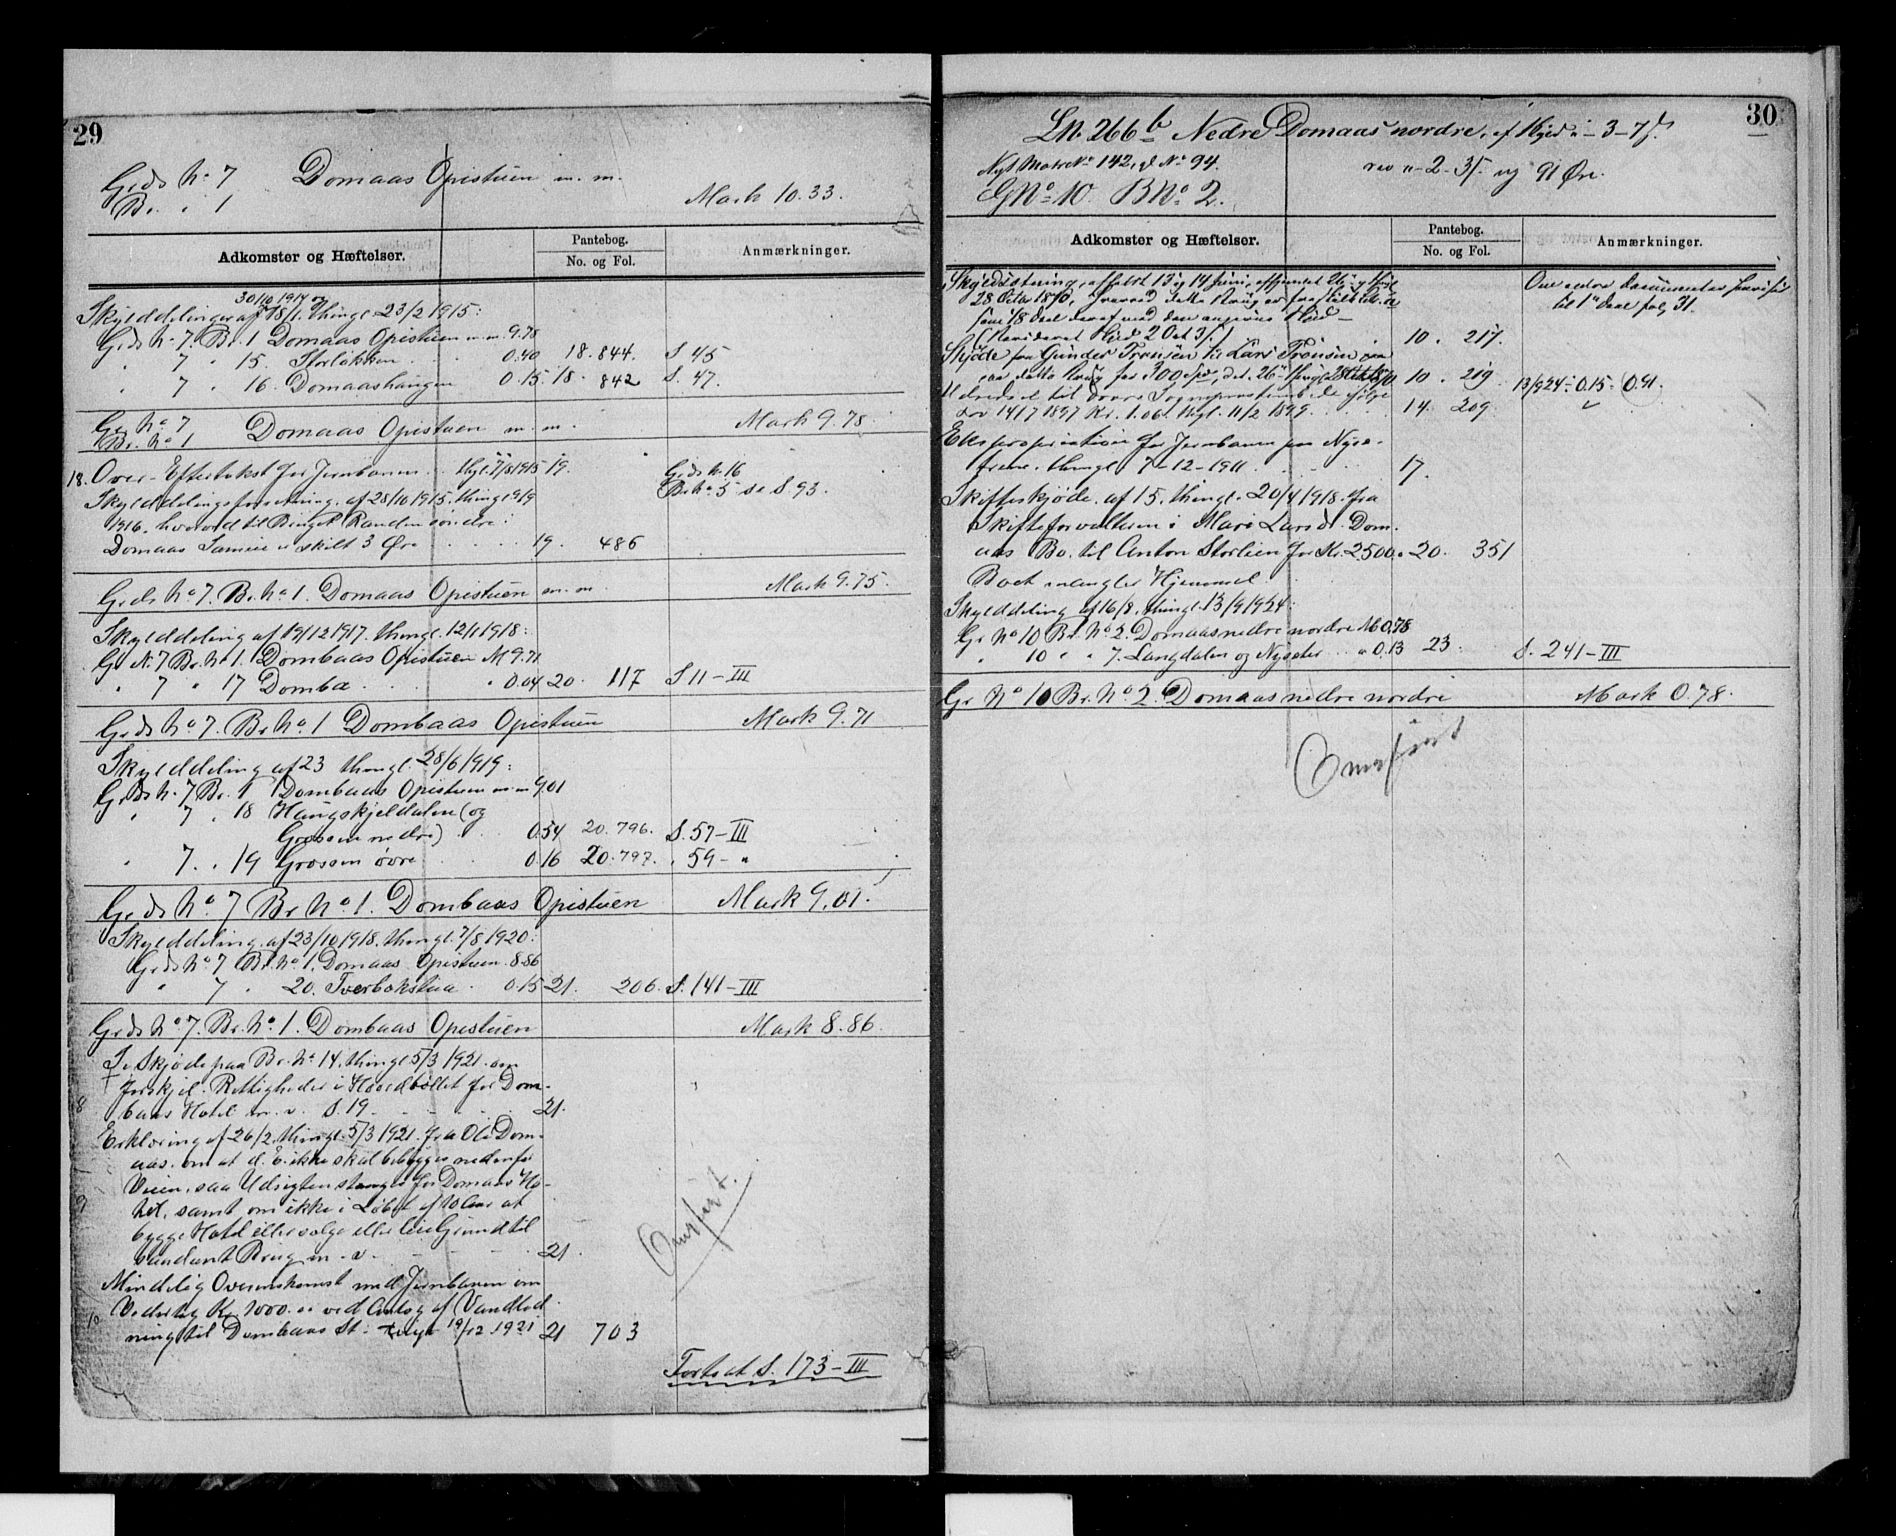 29
Grds No 7 Domaas Opistuen m. m.
Br. " 1 Mark 10.33.
Adkomster og Hæftelser. Pantebog. No. og Fol. Anmærkninger.
30/10 1914 og
Skylddelinger af 18/1. thingl. 23/2 1915:
Grds No 7. Br. 1 Domaas Opistuen m. m. 9.78
" 7 " 15. Storløkken 0.40 18. 844. S. 45
" 7 " 16. Domaashaugen 0.15 18. 842 S. 47.
Grds No 7
Br. No 1 Domaas Opistuen m. m. Mark 9.78
18. Over-Eftertakst for Jernbanen thgl. 1915 19. Grds No 16
Br. No 5 se S. 93.
Skylddelingsforretning af 28/10 1915, thingl.
1916, hvorved til Bruget Randen søndre i
Domaas Sameie er skilt 3 Øre 19. 486
Grds No 7. Br. No 1. Domaas Opistuen m. m. Mark 9.75.
Skylddeling af 19/12 1917. thingl. 12/1 1918:
G. N. 7 Br. No 1. Dombaas Opistuen M 9.71
" 7 " 17 Domba " 0.04 20 117 S 11-III
Grds No 7. Br. No 1 Dombaas Opistuen Mark 9.71
Skylddeling af 23 thingl. 28/6 1919:
Grds No 7 Br. 1 Dombaas Opistuen m. m. 9.01
" 7 " 18 Haugskjeldalen (og
Grøssen nedre) 0.54 20. 796. S. 57-III
" 7. " 19 Grøssen øvre 0.16 20. 797. " 59- "
Grds No 7 Br. No 1. Dombaas Opistuen Mark 9.01.
Skylddeling af 23/10 1918. thingl. 7/8 1920:
Grds No 7 Br. No 1. Domaas Opistuen 8.86
" 7 " 20. Tverbakstua 0.15 21. 206. S. 141-III
Grds No 7. Br. No 1. Dombaas Opistuen Mark 8.86.
Se Skjøde paa Br. No 14, thingl. 5/3 1921. om
forskjel. Rettigheder i Hovedbøllet for Dom-
8 baas Hotel m. v. S. 19 21.
Erklæring af 26/2, thingl. 5/3 1921. fra Ole Dom-
aas. om at d. E. ikke skal bebygges nedenfor
Veien, saa Udsigten stænges for Domaas Ho-
9 tel, samt om ikke i Løbet af 10 Aar at
bygge Hotel eller sælge eller leie Grund til
saadant Brug m. v. 21.
Mindelig Overenskomst med Jernbanen om
Vederlag Kr. 1000.00 ved Anlæg af Vandled-
10 ning til Dombaas St. tingl. 19/12 1921 21 703
Omført.
Fortsat S. 173-III
30
LN. 266 b Nedre Domaas nordre, af Skyld " - 3 - 7 ß.
Nyt Matr. No 142, L No 94. rev " - 2 - 3 ß og 91 Øre.
GNo 10. BNo 2.
Adkomster og Hæftelser. Pantebog. No. og Fol. Anmærkninger.
Skyldsætning, afholdt 13 og 14 Juni,
28 Octbr 1870, hvorved dette Brug er fraskilt
som 1/8 Deel deraf med den angivne Skyld -
(Revideret Skyld 2 Ort 3 ß) 10. 217.
Om ældre Documenter henvises
til 1ste Deel fol. 31.
Skjøde fra Gunder Tronsen til Lars Tronsen paa
dette Brug for 300 Spd, dat. 26 thingl. 28 10. 219 13/9 24 ÷ 0.15 - 0.91.
Udredsel til Sogneprestembede ifølge
Lov 14/7 1897 Kr. 1.06. thgl. 11/2 1899 14. 209
Ekspropriation for Jernbanen paa Nysæ-
trene. thingl. 7-12-1911 17.
Skifteskjøde. af 15. thingl. 20/4 1918. fra
Skifteforvalteren i Mari Larsd. Dom-
aas Bo. til Anton Storlien for Kr. 2500.- 20. 351
Boet mangler Hjemmel
Skylddeling af 16/8, thingl. 13/9 1924:
Gr No 10 Br. No 2. Domaas nedre nordre M 0.78
" 10 " " 7. Langdalen og Nysæter " 0.13 23. S. 241-III
Gr. No 10 Br. No 2. Domaas nedre nordre Mark 0.78.
Omført